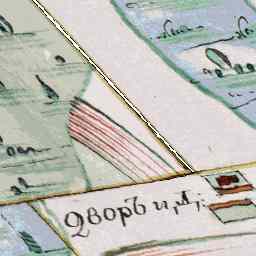 Дворъ и,Д,: